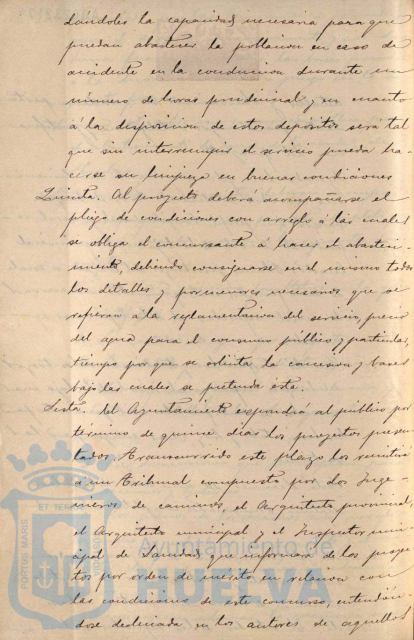 dandoles la capacidad necesaria para que
puedan abastecer la poblacion en caso de
accidente en la conduccion durante un
número de horas prudencial y en cuanto
á la disposicion de estos depósitos será tal
que sin interrumpir el servicio pueda ha-
cerse su limpieza en buenas condiciones
Quinta. Al proyecto deberá acompañarse el
pliego de condiciones con arreglo á las cuales
se obliga el concursante á hacer el abasteci-
miento, debiendo consignarse en el mismo todos
los detalles y pormenores necesarios que se
refieran á la reglamentacion del servicio, precio
del agua para el consumo público y particular,
tiempo por que se solicita la concesion y bases
bajo las cuales se pretenda ésta.
Sesta. El Ayuntamiento expondrá al público por
término de quince dias los proyectos presen-
tados. Transcurrido este plazo los remitirá
á un Tribunal compuesto por dos Inge-
nieros de caminos, el Arquitecto provincial,
el Arquitecto municipal y el Inspector muni-
cipal de Sanidad que informará de los proyec-
tos por orden de mérito en relacion con
las condiciones de este concurso, entendién-
dose declinada en los autores de aquellos
PORTUS MARIS
ET TERRAE
Ayuntamiento de
HUELVA